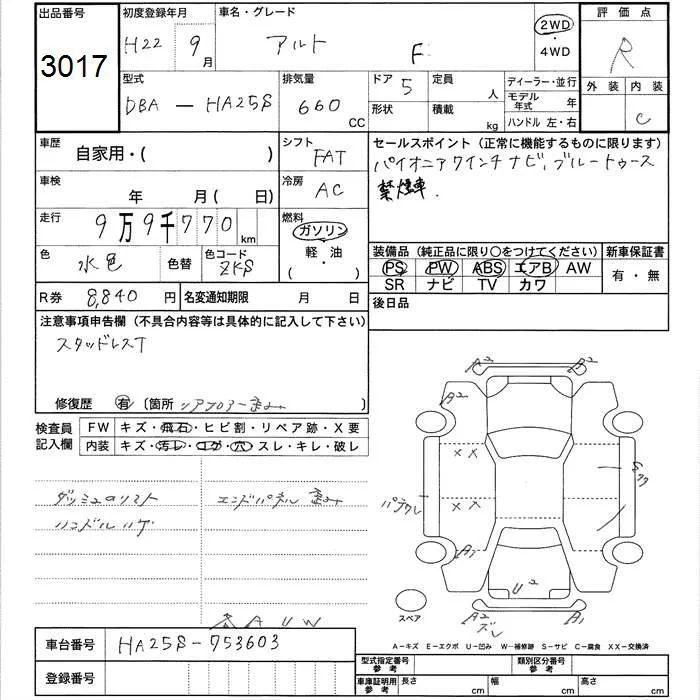 出品番号 初度登録年月 車名・グレード 評価点
3017 H22 9月 アルト F 2WD・4WD R
型式 排気量 ドア 定員 ディーラー・並行 外装 内装
DBA-HA25S 660 CC 5 人 モデル年式 年 C
形状 積載 kg ハンドル 左・右
車歴 自家用・( ) シフト FAT セールスポイント(正常に機能するものに限ります)
パイオニア7インチナビ、ブルートゥース
禁煙車.
車検 年 月( 日) 冷房 AC
走行 9万9千770km 燃料 ガソリン 軽・油 ( )
色 水色 色替 色コード ZKS
装備品(純正品に限り○をつけてください) 新車保証書
PS PW ABS エアB AW 有・無
SR ナビ TV カワ
R券 8,840円 名変通知期限 月 日 後日品
注意事項申告欄(不具合内容等は具体的に記入して下さい)
スタッドレスT
修復歴 有 〔箇所 リアフロアー歪み
検査員記入欄 FW キズ・飛石・ヒビ割・リペア跡・X要
内装 キズ・汚レ・コゲ・穴・スレ・キレ・破レ
A2 A2
XX
パテクレ XX
A1
U2
スペア A2 ズレ A1
エンドパネル歪み
ハンドルハゲ
AUW
車台番号 HA25S-753603
登録番号
A-キズ E-エクボ U-凹み W-補修跡 S-サビ C-腐食 XX-交換済
型式指定番号 参考 類別区分番号 参考
車庫証明用 参考 長さ cm 幅 cm 高さ cm